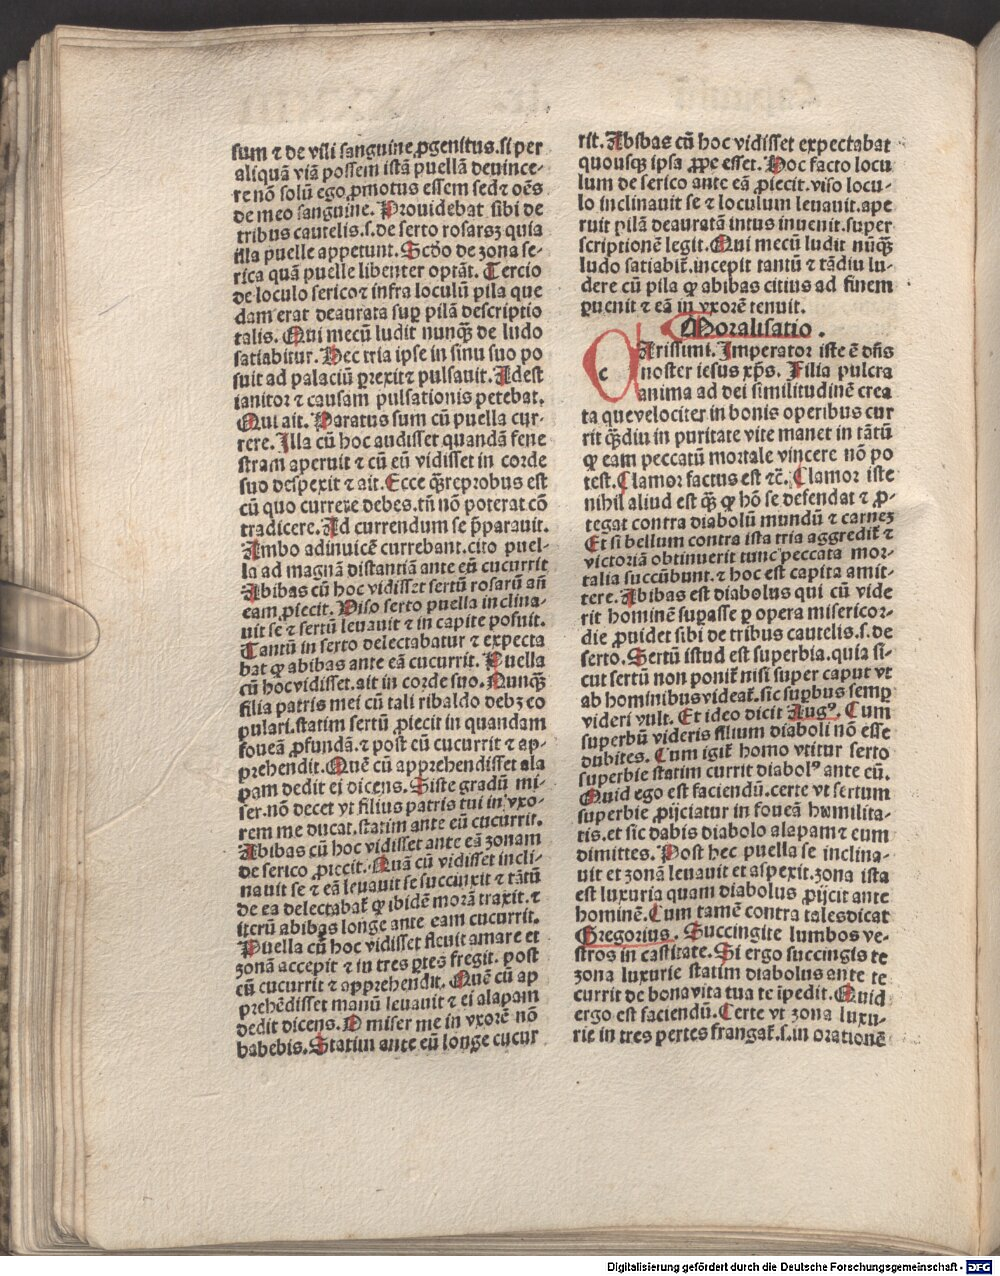 sum ⁊ de vili sanguine ꝓgenitus.si per
aliquã viã possem istã puellã deuince-
re nõ solũ ego ꝓmotus essem sed ⁊ oẽs
de meo sanguine. Prouidebat sibi de
tribus cautelis.s.de serto rosarꝫ quia
illa puelle appetunt. Scđo de zona se-
rica quã puelle libenter optãt. Tercio
de loculo serico ⁊ infra loculũ pila que
dam erat deaurata suꝑ pilã descriptio
talis. Qui mecũ ludit nunqᷓ de ludo
satiabitur. Hec tria ipse in sinu suo po
suit ad palaciũ ꝑrexit ⁊ pulsauit. Adest
ianitor ⁊ causam pulsationis petebat.
Qui ait. Paratus sum cũ puella cur-
rere. Illa cũ hoc audisset quandã fene
stram aperuit ⁊ cũ eũ vidisset in corde
suo despexit ⁊ ait. Ecce qᷓ reprobus est
cũ quo currere debes. tñ nõ poterat cõ
tradicere. Ad currendum se p̃parauit.
Ambo adinuicẽ currebant.cito puel-
la ad magnã distantiã ante eũ cucurrit
Abibas cũ hoc vidisset sertũ rosarũ añ
eam ꝓiecit. Viso serto puella inclina-
uit se ⁊ sertũ leuauit ⁊ in capite posuit.
Tantũ in serto delectabatur ⁊ expecta
bat ꝙ abibas ante eã cucurrit. Puella
cũ hoc vidisset.ait in corde suo. Nunqᷓ
filia patris mei cũ tali ribaldo debꝫ co
pulari.statim sertũ ꝓiecit in quandam
foueã ꝓfundã.⁊ post cũ cucurrit ⁊ ap-
prehendit. Quẽ cũ apprehendisset ala
pam dedit ei dicens. Siste gradũ mi-
ser.nõ decet vt filius patris tui in vxo-
rem me ducat.statim ante eũ cucurrit.
Abibas cũ hoc vidisset ante eã zonam
de serico ꝓiecit. Quã cũ vidisset incli-
nauit se ⁊ eã leuauit se succinxit ⁊ tãtũ
de ea delectabat̃ ꝙ ibidẽ morã traxit.⁊
iterũ abibas longe ante eam cucurrit.
Puella cũ hoc vidisset fleuit amare et
zonã accepit ⁊ in tres ꝑtes fregit. post
eũ cucurrit ⁊ apprehendit. Quẽ cũ ap
prehẽdisset manũ leuauit ⁊ ei alapam
dedit dicens. O miser me in vxorẽ nõ
habebis. Statim ante eũ longe cucur
rit. Abibas cũ hoc vidisset expectabat
quousqꝫ ipsa ꝓpe esset. Hoc facto locu
lum de serico ante eã ꝓiecit.viso locu-
lo inclinauit se ⁊ loculum leuauit.ape
ruit pilã deauratã intus inuenit.super
scriptionẽ legit. Qui mecũ ludit nũqᷓ
ludo satiabit̃.incepit tantũ ⁊ tãdiu lu-
dere cũ pila ꝙ abibas citius ad finem
ꝑuenit ⁊ eã in vxorẽ tenuit.
Moralisatio.
c Arissimi. Imperator iste ẽ dñs
noster iesus xp̃s. Filia pulcra
anima ad dei similitudinẽ crea
ta que velociter in bonis operibus cur
rit qᷓdiu in puritate vite manet in tãtũ
ꝙ eam peccatũ mortale vincere nõ po
test. Clamor factus est ⁊c̃. Clamor iste
nihil aliud est qᷓ ꝙ hõ se defendat ⁊ ꝓ-
tegat contra diabolũ mundũ ⁊ carneꝫ
Et si bellum contra ista tria aggredit̃ ⁊
victoriã obtinuerit tunc peccata mor-
talia succũbunt.⁊ hoc est capita amit-
tere. Abibas est diabolus qui cũ vide
rit hominẽ suꝑasse ꝑ opera misericor-
die ꝓuidet sibi de tribus cautelis.s.de
serto. Sertũ istud est superbia.quia si-
cut sertũ non ponit̃ nisi super caput vt
ab hominibus videat̃.sic suꝑbus semꝑ
videri vult. Et ideo dicit Augꝰ. Cum
superbũ videris filium diaboli nõ esse
dubites. Cum igit̃ homo vtitur serto
superbie statim currit diabolꝰ ante eũ.
Quid ego est faciendũ.certe vt sertum
superbie ꝓijciatur in foueã humilita-
tis.et sic dabis diabolo alapam ⁊ eum
dimittes. Post hec puella se inclina-
uit et zonã leuauit et aspexit.zona ista
est luxuria quam diabolus ꝓijcit ante
hominẽ. Cum tamẽ contra tales dicat
Gregorius. Succingite lumbos ve-
stros in castitate. Si ergo succingis te
zona luxurie statim diabolus ante te
currit de bona vita tua te ĩpedit. Quid
ergo est faciendũ. Certe vt zona luxu-
rie in tres pertes frangat̃.s.in orationẽ
Digitalisierung gefördert durch die Deutsche Forschungsgemeinschaft - DFG